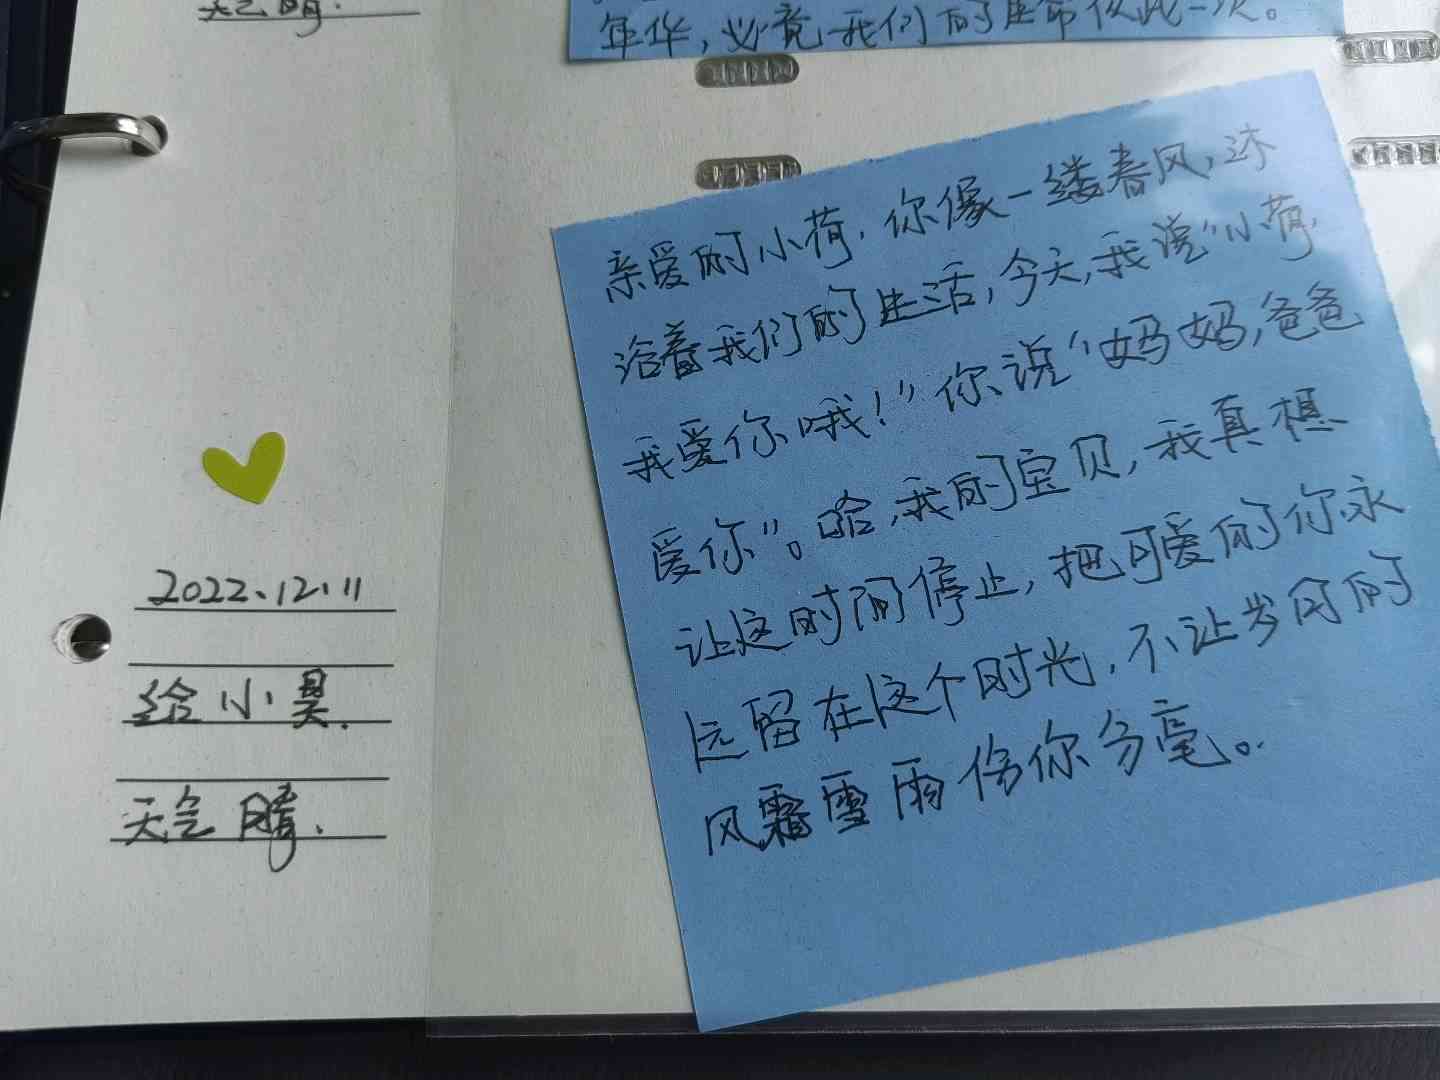 天气晴.
年华，必竟我们的生命仅此一次。
亲爱的小荷，你像一缕春风，沐
浴着我们的生活，今天，我说"小荷，
我爱你哦！"你说"妈妈，爸爸
爱你"。哈，我的宝贝，我真想
让这时间停止，把可爱的你永
远留在这个时光，不让岁月的
风霜雪雨伤你分毫。
2022.12.11
给小昊.
天气晴.